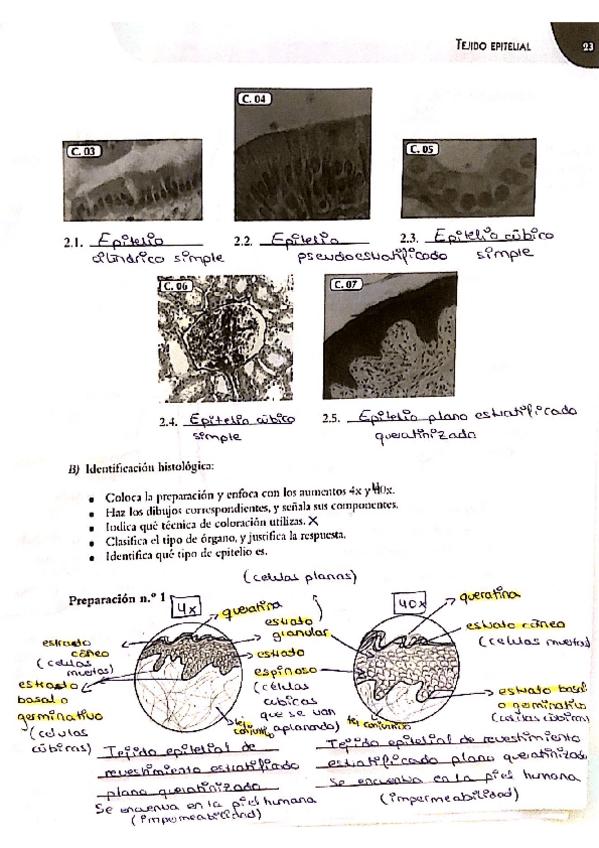 TEJIDO EPITELIAL 23
C. 03 C. 04 C. 05
2.1. Epitelio 2.2. Epitelio 2.3. Epitelio cúbico
cilíndrico simple pseudoestratificado simple
C. 06 C. 07
2.4. Epitelio cúbico 2.5. Epitelio plano estratificado
simple queratinizado
B) Identificación histológica:
• Coloca la preparación y enfoca con los aumentos 4x y 40x.
• Haz los dibujos correspondientes, y señala sus componentes.
• Indica qué técnica de coloración utilizas. X
• Clasifica el tipo de órgano, y justifica la respuesta.
• Identifica qué tipo de epitelio es.
(celulas planas)
Preparación n.º 1 4x queratina 40x queratina
estrato
granular
estrato córneo
(celulas muertas)
estrato
córneo
(celulas
muertas)
estrato
espinoso
(células
cúbicas
que se van
aplanando)
estrato
basal o
germinativo
(celulas
cúbicas)
estrato basal
o germinativo
(celulas cúbicas)
tej.
conjuntivo
tej. conjuntivo
Tejido epitelial de
revestimiento estratificado
plano queratinizado
Se encuentra en la piel humana
(impermeabilidad)
Tejido epitelial de revestimiento
estratificado plano queratinizado
Se encuentra en la piel humana
(impermeabilidad)